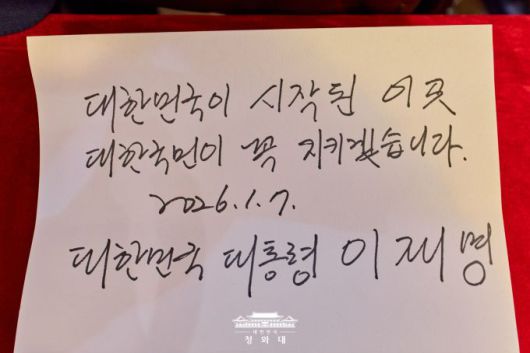 대한민국이 시작된 이곳
대한국민이 꼭 지키겠습니다.
2026.1.7.
대한민국 대통령 이재명
대한민국
청와대